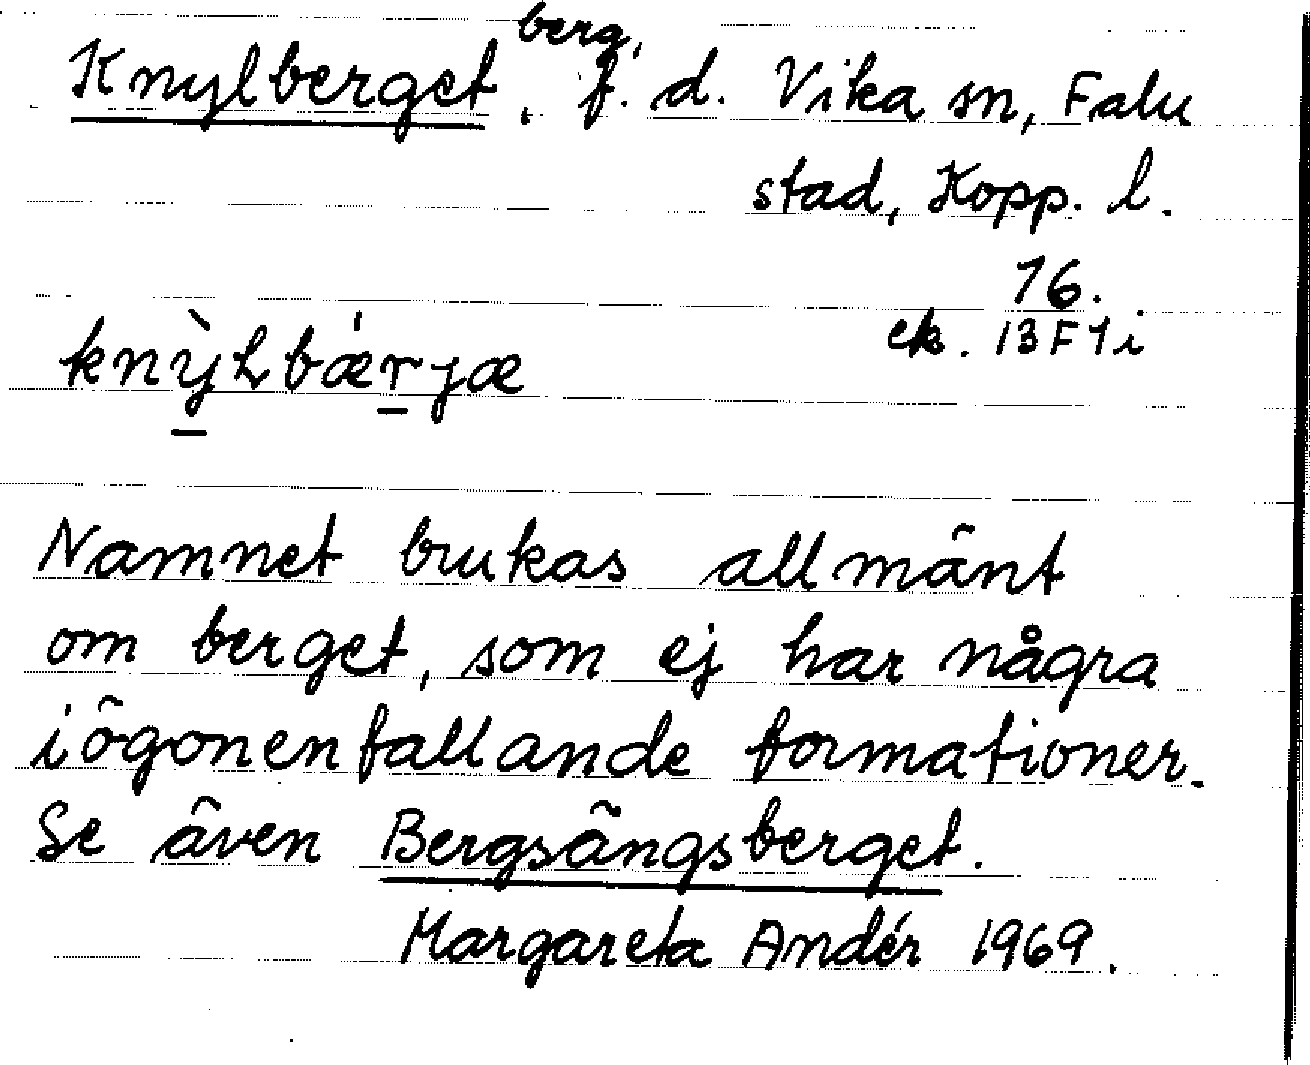 Knylberget, berg, f. d. Vika sn, Falu
stad, Kopp. l.
16.
ek. 13F1i
knỳlbǽrjæ
Namnet brukas allmänt
om berget, som ej har några
iögonenfallande formationer.
Se även Bergsängsberget.
Margareta Andér 1969.